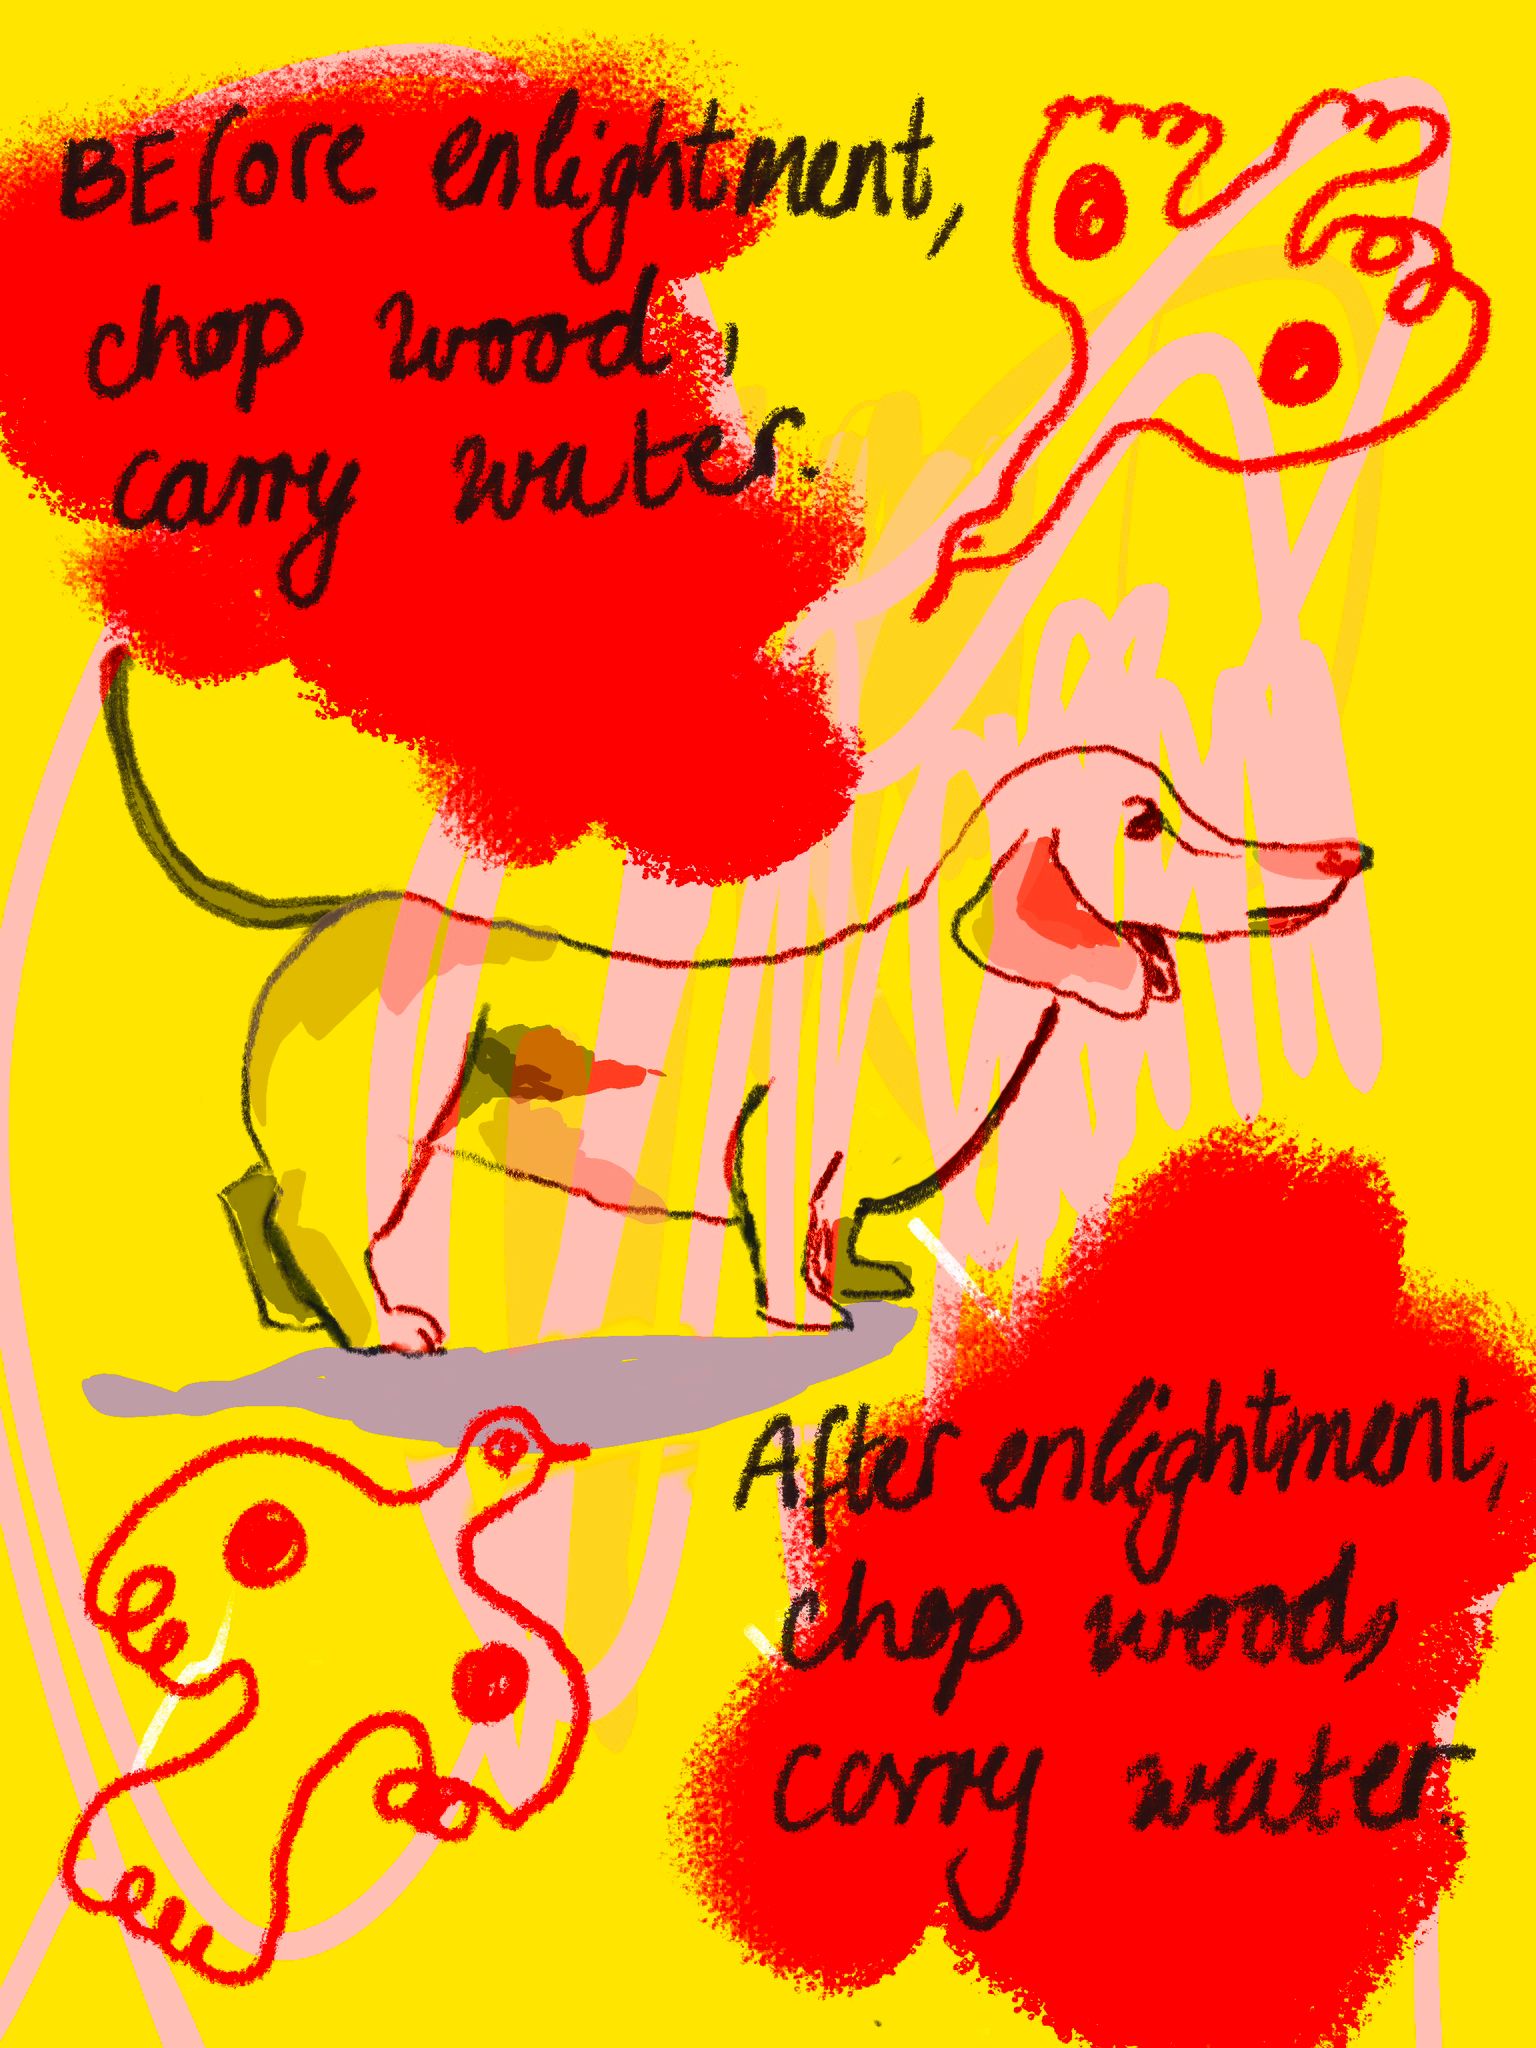 BEfore enlightment,
chop wood,
carry water.
After enlightment,
chop wood,
carry water.